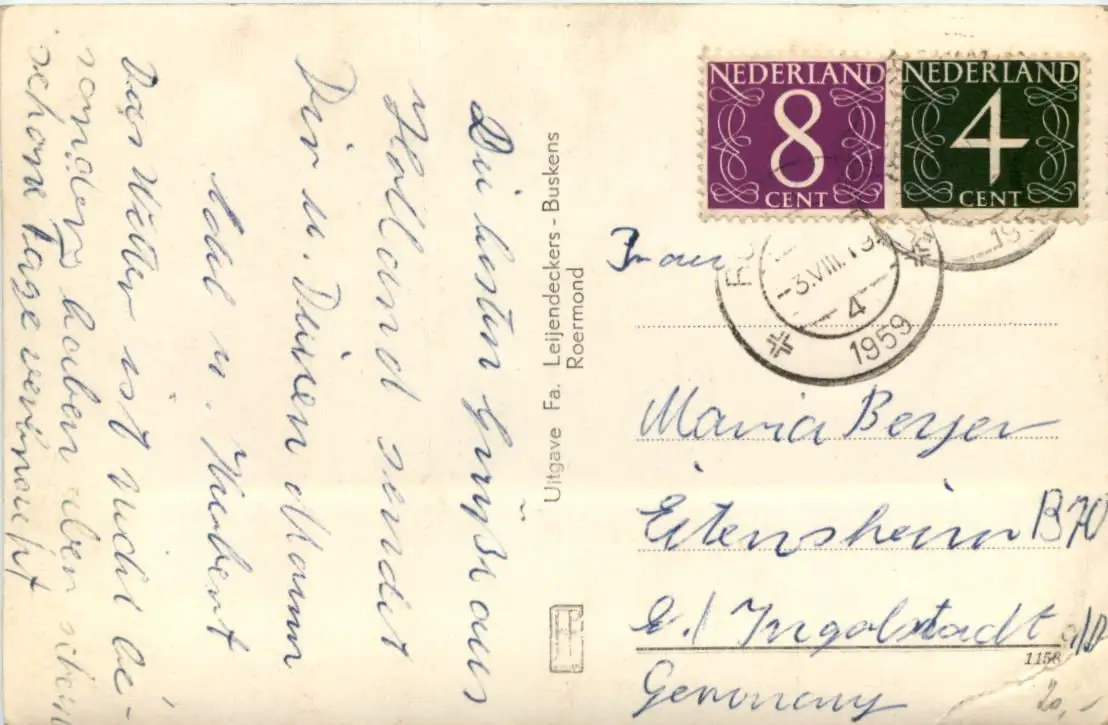 Die besten Grüße aus
Holland sendet
Dir u. Deinen Mann
u. Hubert
Das Wetter ist nicht be-
sonders haben aber schon
schöne Tage
Uitgave Fa. Leijendeckers - Buskens
Roermond
NEDERLAND
8
CENT
NEDERLAND
4
CENT
3.VIII.
4
1959
1959
Frau
Maria Berger
Eitensheim B70
b./ Ingolstadt a/D
1158
Germany
20,-